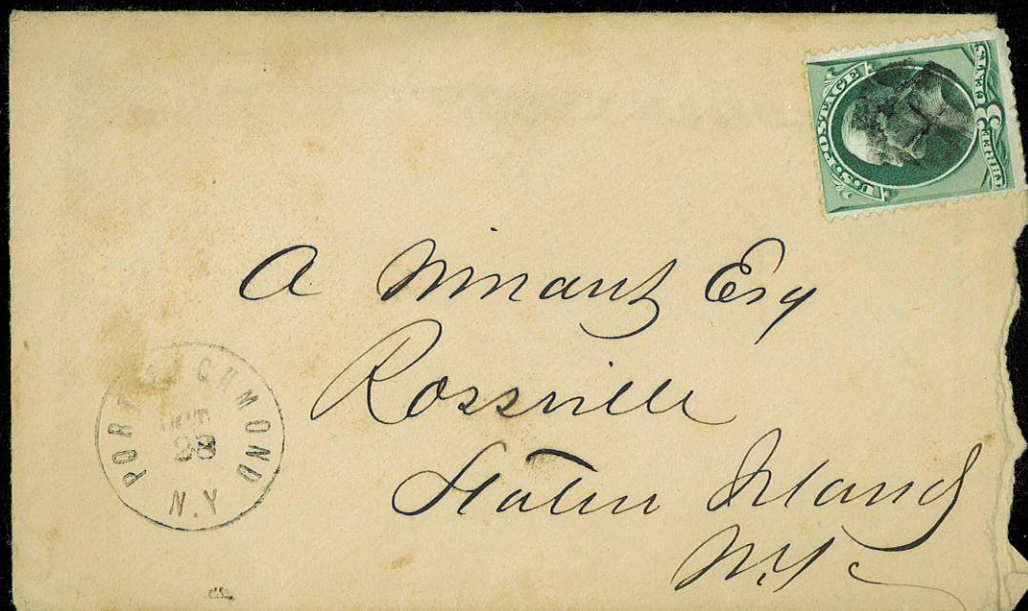 U.S. POSTAGE
THREE 3 CENTS
A Winant Esq
Rossville
Staten Island
N.Y.
PORT RICHMOND
OCT
28
N.Y